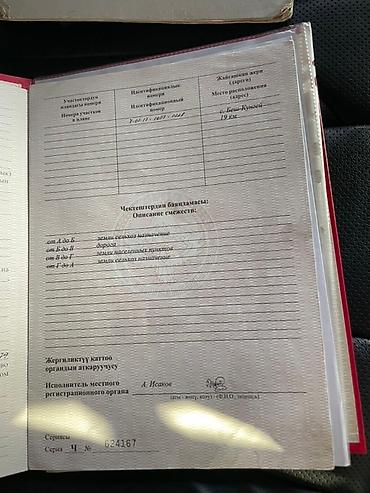 Участоктордун
пландагы номери
Номера участков
в плане
Идентификациялык
номери
Идентификационный
номер
Жайгашкан жери
(дареги)
Место расположения
(адрес)
с. Беш-Кунгей
19 км
Чектештердин баяндамасы:
Описание смежеств:
от А до Б земли сельхоз назначение
от Б до В дорога
от В до Г земли населенных пунктов
от Г до А земли сельхоз назначение
Жергиликтүү каттоо
органдын аткаруучусу
Исполнитель местного
регистрационного органа
А. Исаков
(аты - жөнү, колу) - (Ф.И.О., подпись)
Сериясы
Серия Ч № 024167